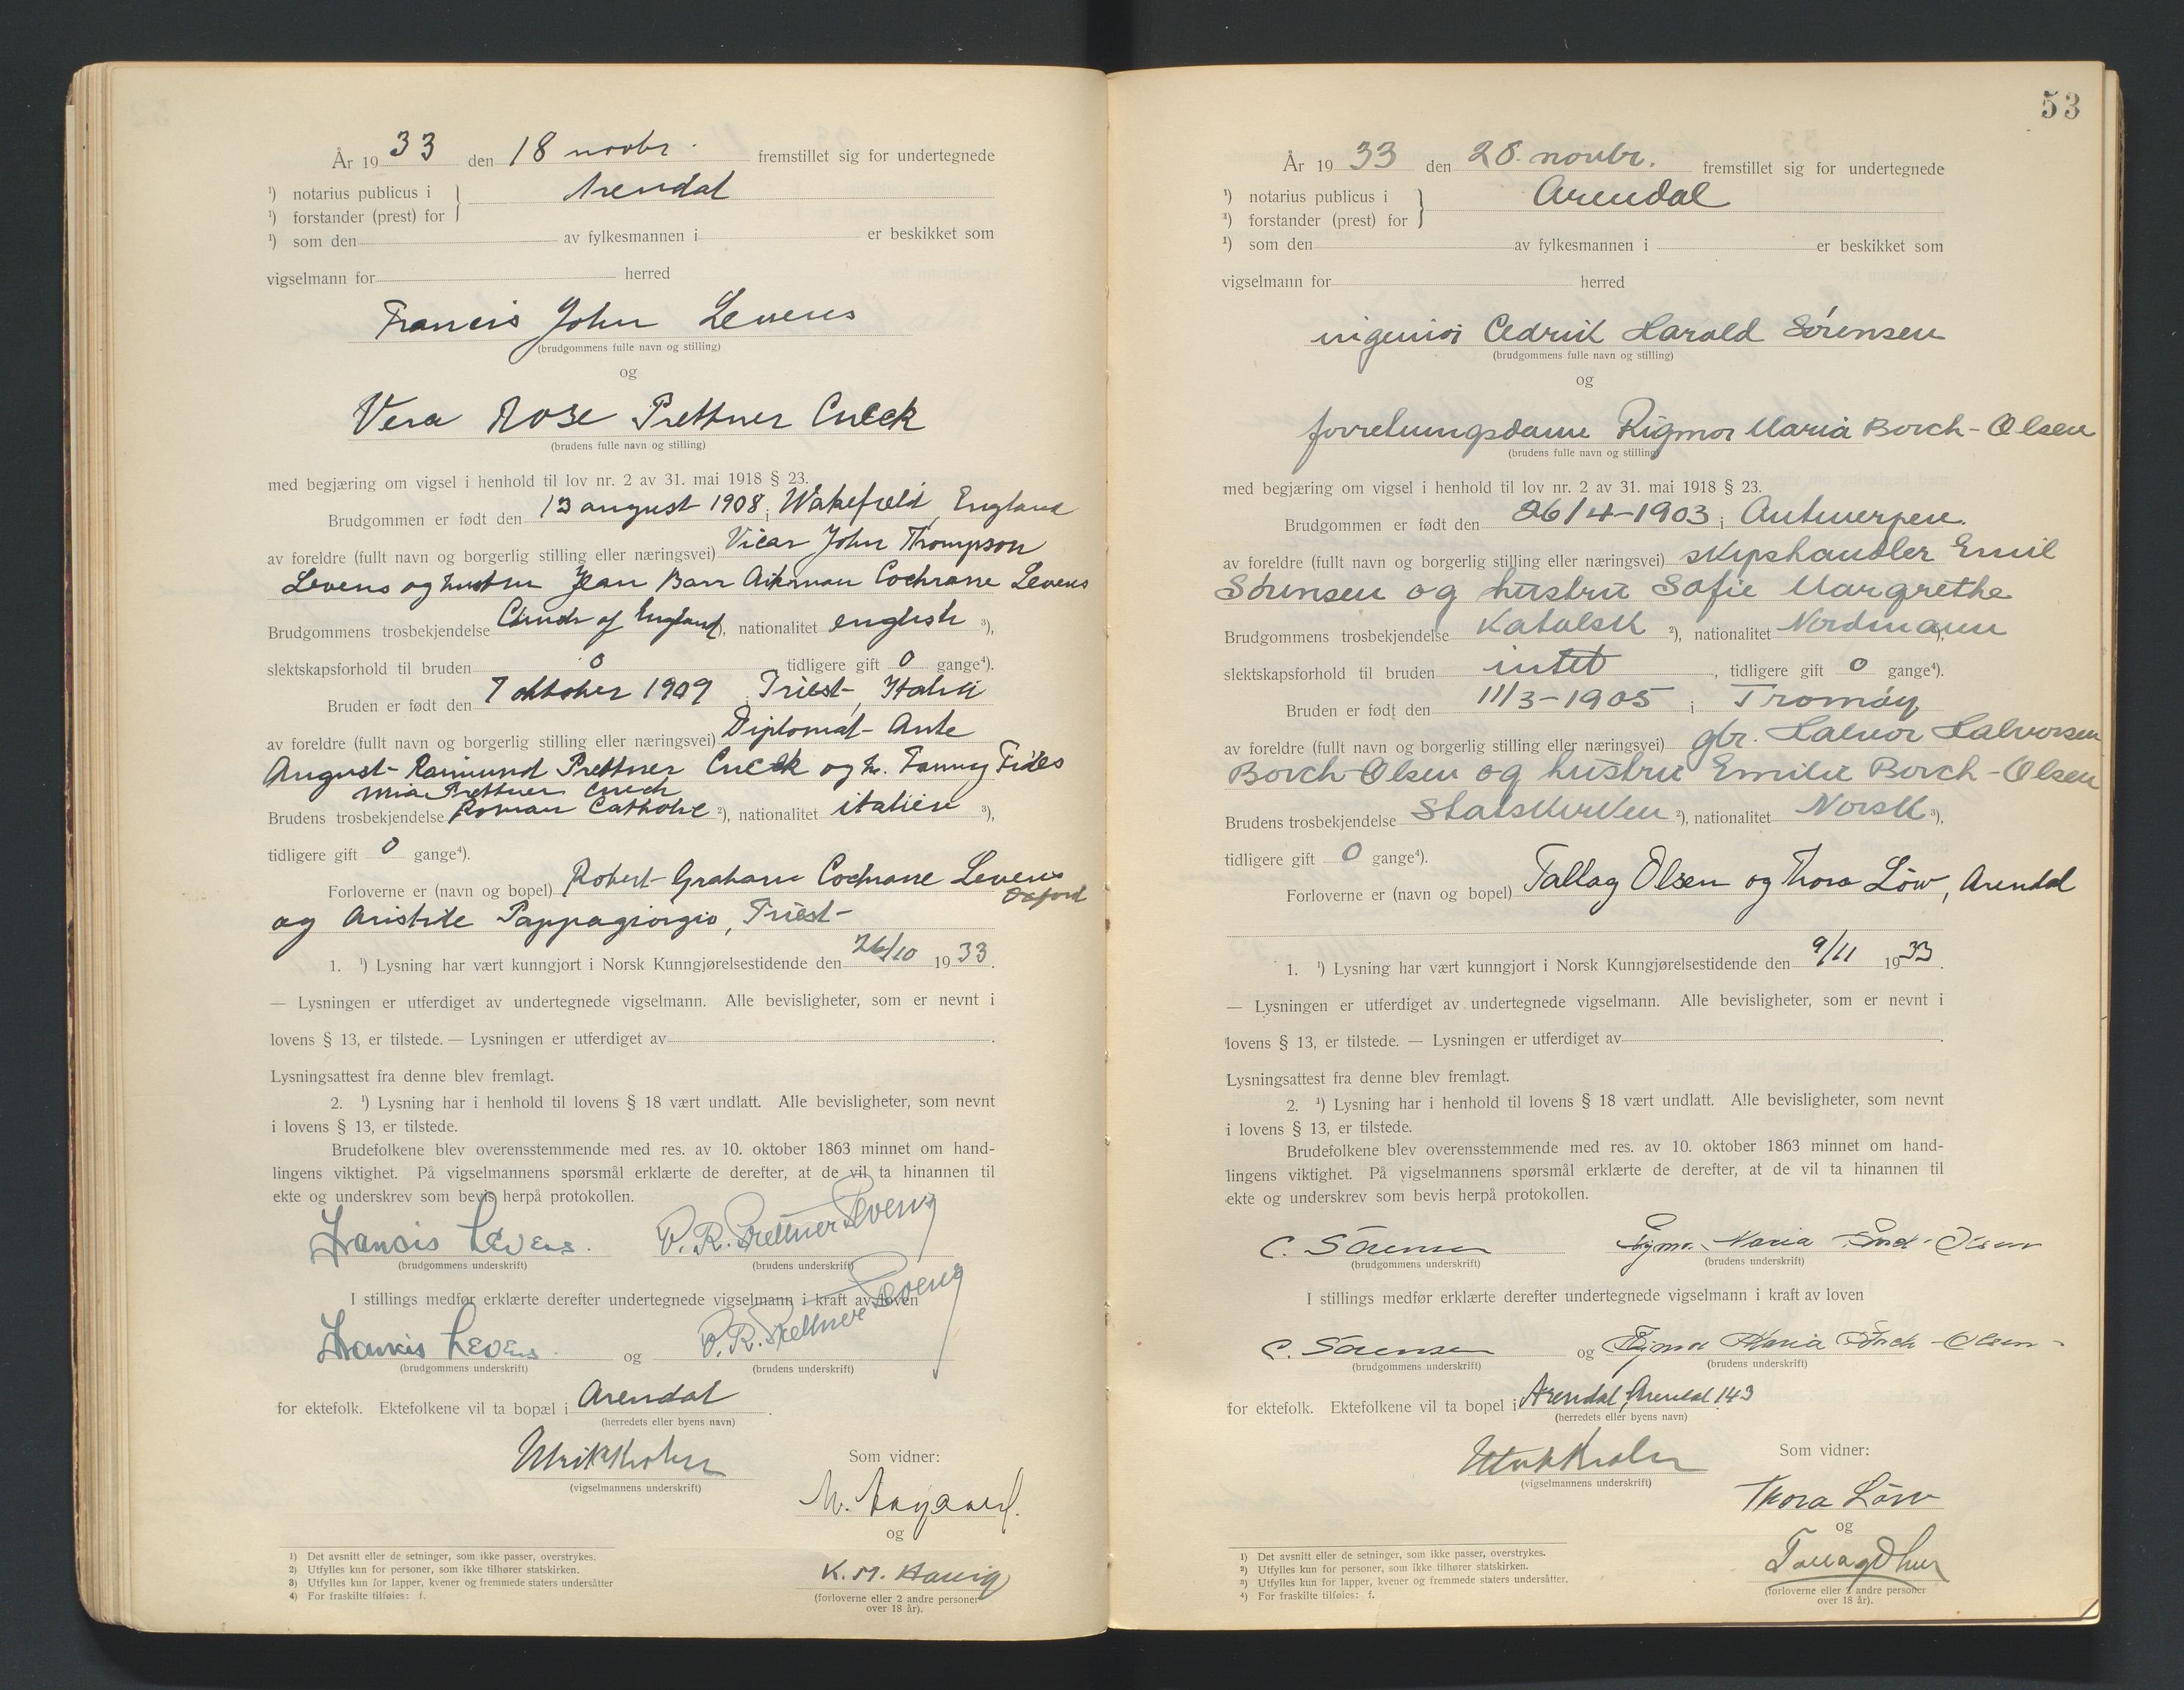 År 19 33 den 18 novbr. fremstillet sig for undertegnede
¹) notarius publicus i } Arendal
¹) forstander (prest) for
¹) som den av fylkesmannen i er beskikket som
vigselmann for herred
Francis John Levens
(brudgommens fulle navn og stilling)
og
Vera Rose Prettner Cueck
(brudens fulle navn og stilling)
med begjæring om vigsel i henhold til lov nr. 2 av 31. mai 1918 § 23.
Brudgommen er født den 13 august 1908 i Wakefield, England
av foreldre (fullt navn og borgerlig stilling eller næringsvei) Vicar John Thompson
Levens og hustru Jean Barr Aikman Cochrane Levens
Brudgommens trosbekjendelse Church of England ²), nationalitet english ³),
slektskapsforhold til bruden 0 tidligere gift 0 gange⁴).
Bruden er født den 7 oktober 1909 i Triest, Italien
av foreldre (fullt navn og borgerlig stilling eller næringsvei) Diplomat Ante
August Raimund Prettner Cueck og h. Fanny Fides
Mia Prettner Cuech
Brudens trosbekjendelse Roman Catholic ²), nationalitet italien ³),
tidligere gift 0 gange⁴).
Forloverne er (navn og bopel) Robert Graham Cochrane Levens
Oxford
og Aristide Pappagiorgio, Triest
1. ¹) Lysning har vært kunngjort i Norsk Kunngjørelsestidende den 26/10 19 33.
— Lysningen er utferdiget av undertegnede vigselmann. Alle bevisligheter, som er nevnt i
lovens § 13, er tilstede. — Lysningen er utferdiget av .
Lysningsattest fra denne blev fremlagt.
2. ¹) Lysning har i henhold til lovens § 18 vært undlatt. Alle bevisligheter, som nevnt
i lovens § 13, er tilstede.
Brudefolkene blev overensstemmende med res. av 10. oktober 1863 minnet om hand-
lingens viktighet. På vigselmannens spørsmål erklærte de derefter, at de vil ta hinannen til
ekte og underskrev som bevis herpå protokollen.
Francis Levens. V. R. Prettner Levens
(brudgommens underskrift) (brudens underskrift)
I stillings medfør erklærte derefter undertegnede vigselmann i kraft av loven
Francis Levens og V. R. Prettner Levens
(brudgommens underskrift) (brudens underskrift)
for ektefolk. Ektefolkene vil ta bopæl i Arendal .
(herredets eller byens navn)
Som vidner:
(vigselmannens underskrift)
M. Aagaard.
og
K. M. Hauig
(forloverne eller 2 andre personer
over 18 år).
1) Det avsnitt eller de setninger, som ikke passer, overstrykes.
2) Utfylles kun for personer, som ikke tilhører statskirken.
3) Utfylles kun for lapper, kvener og fremmede staters undersåtter
4) For fraskilte tilføies: f.
53
År 19 33 den 28. novbr. fremstillet sig for undertegnede
¹) notarius publicus i } Arendal
¹) forstander (prest) for
¹) som den av fylkesmannen i er beskikket som
vigselmann for herred
ingeniør Cedrik Harald Sörensen
(brudgommens fulle navn og stilling)
og
forretningsdame Rigmor Maria Borch-Olsen
(brudens fulle navn og stilling)
med begjæring om vigsel i henhold til lov nr. 2 av 31. mai 1918 § 23.
Brudgommen er født den 26/4-1903 i Antwerpen.
av foreldre (fullt navn og borgerlig stilling eller næringsvei) skipshandler Emil
Sörensen og hustru Sofie Margrethe
Brudgommens trosbekjendelse Katolsk ²), nationalitet Nordmann ³),
slektskapsforhold til bruden intet , tidligere gift 0 gange⁴).
Bruden er født den 11/3-1905 i Tromöy
av foreldre (fullt navn og borgerlig stilling eller næringsvei) gbr. Halvor Halvorsen
Borch-Olsen og hustru Emilie Borch-Olsen
Brudens trosbekjendelse Statskirken ²), nationalitet Norsk ³),
tidligere gift 0 gange⁴).
Forloverne er (navn og bopel) Tallag Olsen og Thora Löw, Arendal
1. ¹) Lysning har vært kunngjort i Norsk Kunngjørelsestidende den 9/11 19 33.
— Lysningen er utferdiget av undertegnede vigselmann. Alle bevisligheter, som er nevnt i
lovens § 13, er tilstede. — Lysningen er utferdiget av .
Lysningsattest fra denne blev fremlagt.
2. ¹) Lysning har i henhold til lovens § 18 vært undlatt. Alle bevisligheter, som nevnt
i lovens § 13, er tilstede.
Brudefolkene blev overensstemmende med res. av 10. oktober 1863 minnet om hand-
lingens viktighet. På vigselmannens spørsmål erklærte de derefter, at de vil ta hinannen til
ekte og underskrev som bevis herpå protokollen.
C. Sörensen Rigmor Maria Borch-Olsen
(brudgommens underskrift) (brudens underskrift)
I stillings medfør erklærte derefter undertegnede vigselmann i kraft av loven
C. Sörensen og Rigmor Maria Borch-Olsen
(brudgommens underskrift) (brudens underskrift)
for ektefolk. Ektefolkene vil ta bopel i Arendal, Arendal 143
(herredets eller byens navn)
Som vidner:
(vigselmannens underskrift)
Thora Löw
og
Tallag Olsen
(forloverne eller 2 andre personer
over 18 år).
1) Det avsnitt eller de setninger, som ikke passer, overstrykes.
2) Utfylles kun for personer, som ikke tilhører statskirken.
3) Utfylles kun for lapper, kvener og fremmede staters undersåtter.
4) For fraskilte tilføies: f.